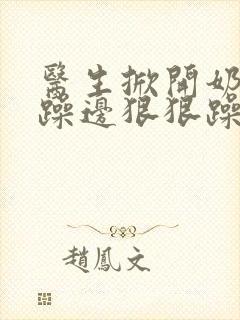 醫生掀開奶
躁邊狠狠躁
趙鳳文